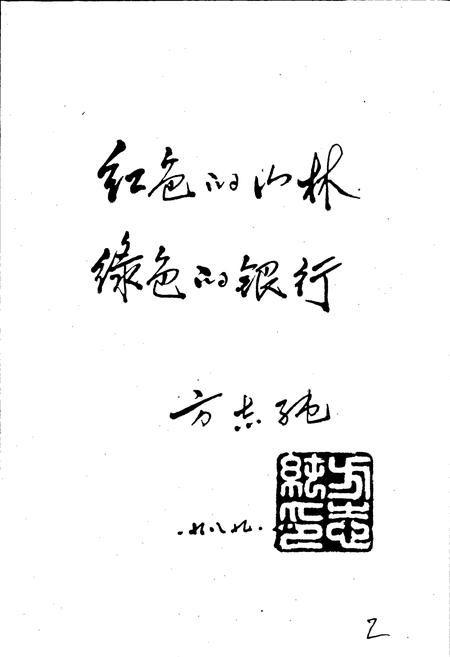 红色的山林
绿色的银行
方志纯
一九八九.
方志
纯印
2